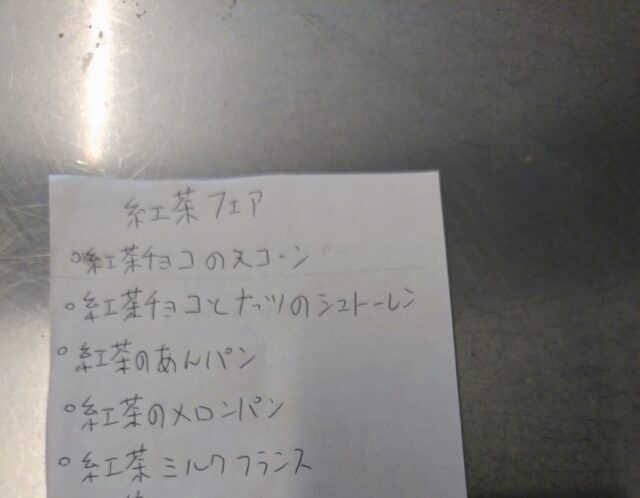 紅茶フェア
○紅茶チョコのスコーン
○紅茶チョコとナッツのシュトーレン
○紅茶のあんパン
○紅茶のメロンパン
○紅茶ミルクフランス